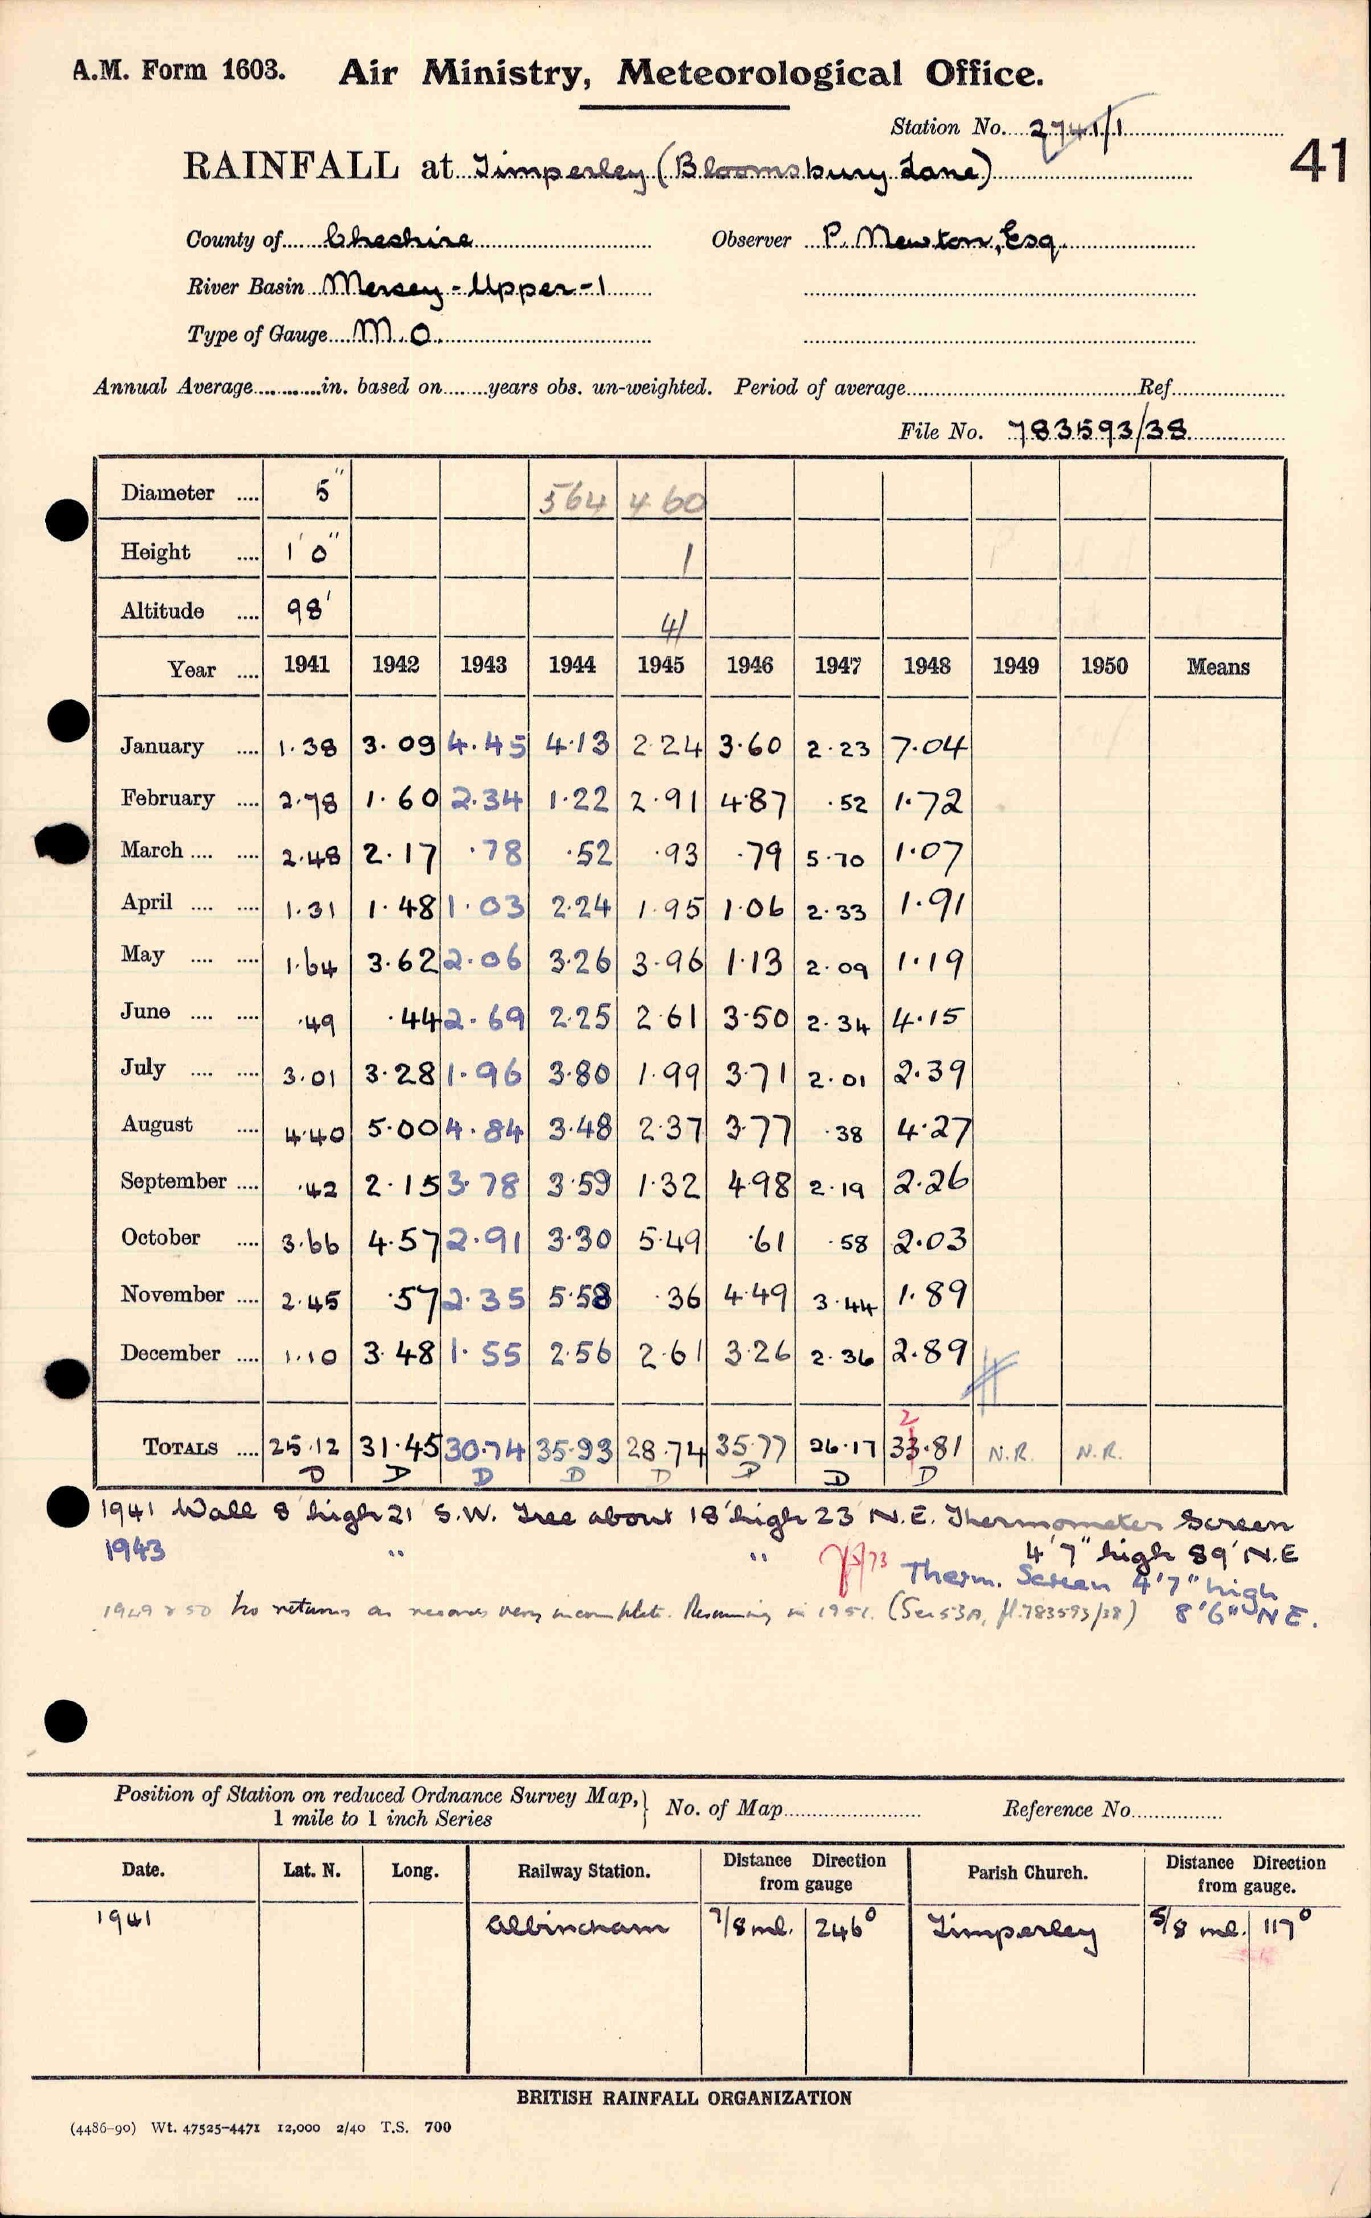 A.M. Form 1603. Air Ministry, Meteorological Office.
Station No. 2741/1
41
RAINFALL at Timperley (Bloomsbury Lane)
County of Cheshire Observer P. Newton, Esq.
River Basin Mersey - Upper - 1
Type of Gauge M.O.
Annual Average in. based on years obs. un-weighted. Period of average Ref.
File No. 783593/38
Diameter 5" 564 460
Height 1'0" 1
Altitude 98' 41
Year 1941 1942 1943 1944 1945 1946 1947 1948 1949 1950 Means
January 1.38 3.09 4.45 4.13 2.24 3.60 2.23 7.04
February 2.78 1.60 2.34 1.22 2.91 4.87 .52 1.72
March 2.48 2.17 .78 .52 .93 .79 5.70 1.07
April 1.31 1.48 1.03 2.24 1.95 1.06 2.33 1.91
May 1.64 3.62 2.06 3.26 3.96 1.13 2.09 1.19
June .49 .44 2.69 2.25 2.61 3.50 2.34 4.15
July 3.01 3.28 1.96 3.80 1.99 3.71 2.01 2.39
August 4.40 5.00 4.84 3.48 2.37 3.77 .38 4.27
September .42 2.15 3.78 3.59 1.32 4.98 2.19 2.26
October 3.66 4.57 2.91 3.30 5.49 .61 .58 2.03
November 2.45 .57 2.35 5.58 .36 4.49 3.44 1.89
December 1.10 3.48 1.55 2.56 2.61 3.26 2.36 2.89
2
TOTALS 25.12 31.45 30.74 35.93 28.74 35.77 26.17 33.81 N.R. N.R.
D D D D D D D D
1941 Wall 8' high 21' S.W. Tree about 18' high 23' N.E. Thermometer Screen
4'7" high 89' N.E
1943 " " Therm. Screen 4'7" high
8'6" N E.
1949 & 50 No returns as records very incomplete. Resuming in 1951. (See 53A, fl.783593/38)
Position of Station on reduced Ordnance Survey Map, 1 mile to 1 inch Series } No. of Map Reference No.
Date. Lat. N. Long. Railway Station. Distance Direction from gauge Parish Church. Distance Direction from gauge.
1941 Altrincham 7/8 ml. 246° Timperley 5/8 ml. 117°
BRITISH RAINFALL ORGANIZATION
(4486-90) Wt. 47525-4471 12,000 2/40 T.S. 700